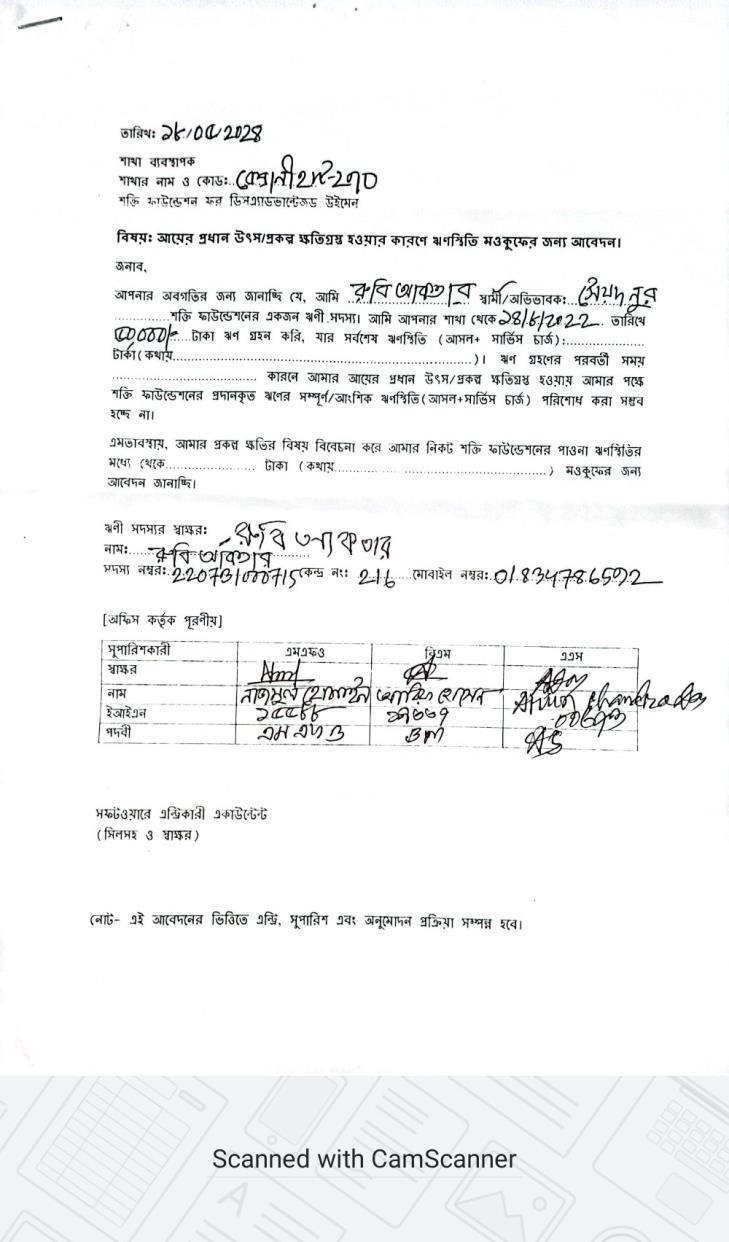 তারিখঃ
শাখা ব্যবস্থাপক
শাখার নাম ও কোডঃ..
শক্তি ফাউন্ডেশন ফর ডিসএ্যাডভান্টেজড উইমেন
বিষয়ঃ আয়ের প্রধান উৎস/প্রকল্প ক্ষতিগ্রস্থ হওয়ার কারণে ঋণস্থিতি মওকুফের জন্য আবেদন।
জনাব,
আপনার অবগতির জন্য জানাচ্ছি যে, আমি রুবি আকতার স্বামী/অভিভাবকঃ... সৈয়দ নুর
...............শক্তি ফাউন্ডেশনের একজন ঋণী সদস্য। আমি আপনার শাখা থেকে তারিখে
টাকা ঋণ গ্রহন করি, যার সর্বশেষ ঋণস্থিতি (আসল+ সার্ভিস চার্জ):..................
টাকা(কথায়..............................................................)। ঋণ গ্রহণের পরবর্তী সময়
.............................. কারনে আমার আয়ের প্রধান উৎস/প্রকল্প ক্ষতিগ্রস্থ হওয়ায় আমার পক্ষে
শক্তি ফাউন্ডেশনের প্রদানকৃত ঋণের সম্পূর্ণ/আংশিক ঋণস্থিতি(আসল+সার্ভিস চার্জ) পরিশোধ করা সম্ভব
হচ্ছে না।
এমতাবস্থায়, আমার প্রকল্প ক্ষতির বিষয় বিবেচনা করে আমার নিকট শক্তি ফাউন্ডেশনের পাওনা ঋণস্থিতির
মধ্যে থেকে....................... টাকা (কথায়......................................................) মওকুফের জন্য
আবেদন জানাচ্ছি।
ঋণী সদস্যর স্বাক্ষরঃ রুবি আকতার
নাম:...... রুবি আকতার
সদস্য নম্বরঃ কেন্দ্র নং: 216 ....মোবাইল নম্বরঃ. 01834786592
[অফিস কর্তৃক পূরণীয়]
সুপারিশকারী এমএফও বিএম এএস
স্বাক্ষর
নাম নাজমুল হোসাইন আরিফ হোসেন
ইআইএন
পদবী এম এফ ও BM AS
সফটওয়ারে এন্ট্রিকারী একাউন্টেন্ট
(সিলসহ ও স্বাক্ষর)
নোট- এই আবেদনের ভিত্তিতে এন্ট্রি, সুপারিশ এবং অনুমোদন প্রক্রিয়া সম্পন্ন হবে।
Scanned with CamScanner